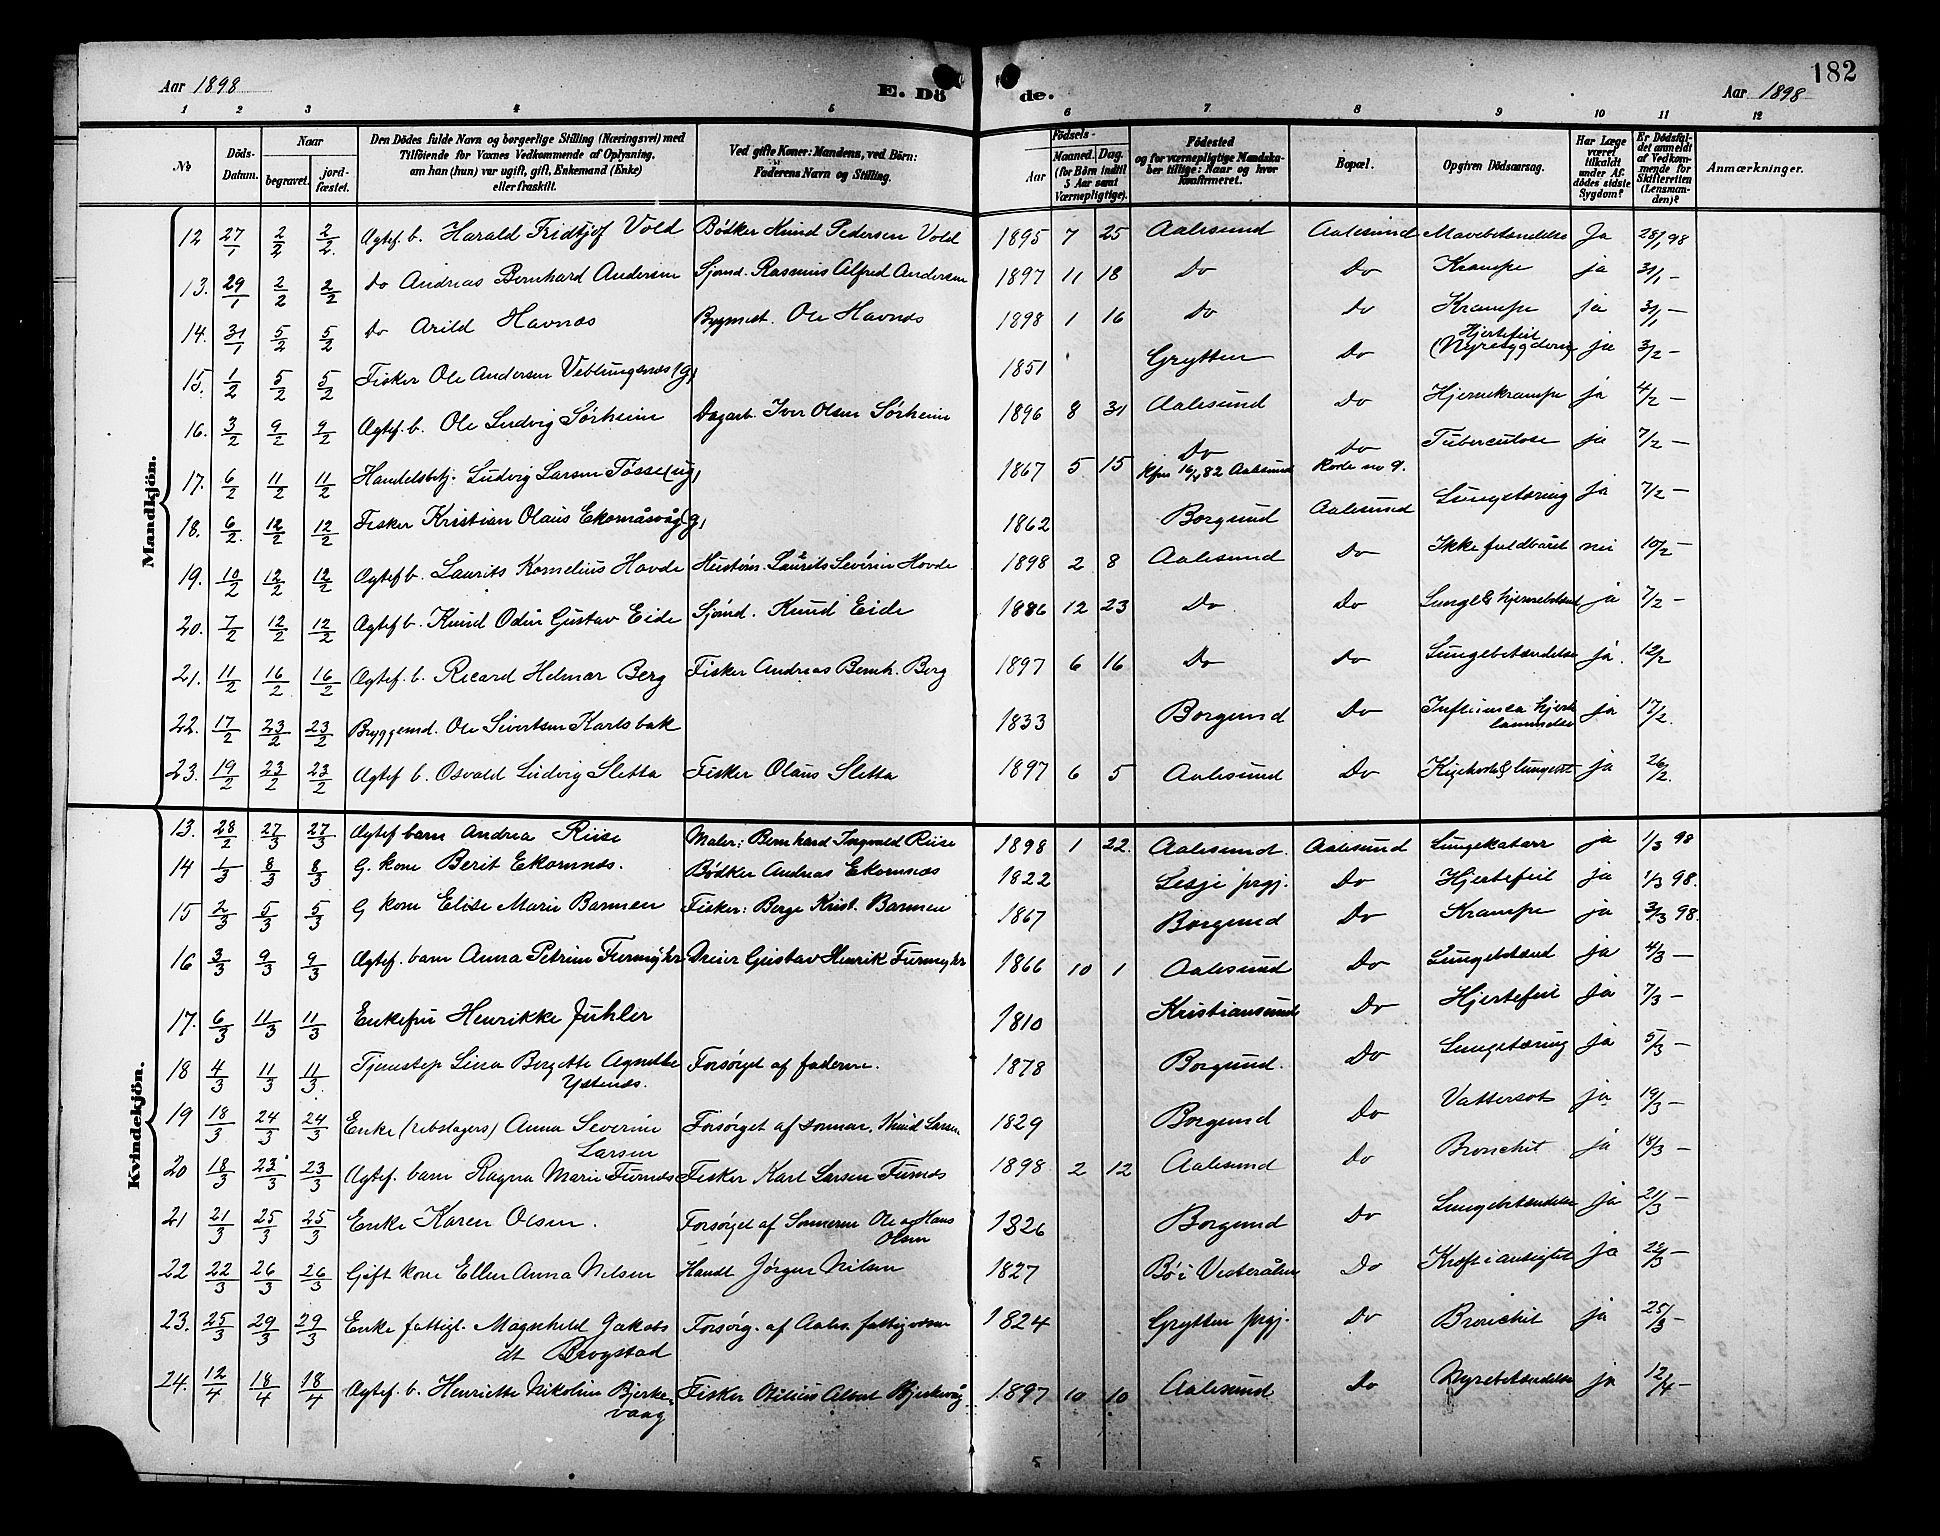 182
Aar 1898
E. Dö de.
Aar 1898
1 2 3 4 5 6 7 8 9 10 11 12
No
Döds-Datum.
Naar
begravet.
jord-fæstet.
Den Dödes fulde Navn og borgerlige Stilling (Næringsvei) med
Tilföiende for Voxnes Vedkommende af Oplysning,
om han (hun) var ugift, gift, Enkemand (Enke)
eller fraskilt.
Ved gifte Koner: Mandens, ved Börn:
Faderens Navn og Stilling.
Födsels-
Aar
Maaned. Dag.
(for Börn indtil
5 Aar samt
Værnepligtige).
Födested
og for værnepligtige Mandska-
ber tillige: Naar og hvor
konfirmeret.
Bopæl.
Opgiven Dödsaarsag.
Har Læge
været
tilkaldt
under Af-
dödes sidste
Sygdom?
Er Dödsfal-
det anmeldt
af Vedkom-
mende for
Skifteretten
(Lensman-
den)?
Anmærkninger.
Mandkjön.
12 27/1 2/2 2/2. Ægtef. b. Harald Fridtjof Vold Bødker Knud Pedersen Vold 1895 7 25 Aalesund Aalesund Mavebetændelse Ja 28/1 98
13. 29/1 2/2 2/2 Do Andreas Bernhard Andersen Sjømd. Rasmus Alfred Andersen 1897 11 18 Do Do Krampe ja 31/1 —
14. 31/1 5/2 5/2 Do Arild Havnæs Bygmest. Ole Havnæs 1898 1 16 Do Do Krampe ja 31/1 —
15. 1/2 5/2 5/2 Fisker Ole Andersen Veblungsnæs (g) 1851 Grytten Do Hjertefeil (Nyresygdom) ja 3/2 —
16. 3/2 9/2 9/2 Ægtef. b. Ole Ludvig Sørheim Dagarb. Iver Olsen Sørheim 1896 8 31 Aalesund Do Hjernekrampe ja 4/2 —
17. 6/2 11/2 11/2 Handelsbetj. Ludvig Larsen Tøsse (ug) 1867 5 15 Do Kfm 16/4 82 Aalesund Do Rode no 9. Tuberculose ja 7/2 —
18. 6/2. 12/2 12/2 Fisker Kristian Olaus Ekornåsvåg (g) 1862 Borgund Aalesund Lungetæring ja 7/2 —
19. 10/2 12/2 12/2 Ægtef b. Laurits Kornelius Hovde Laurits Severin Hovde 1898 2 8 Aalesund Do Ikke fuldbåret nei 10/2 —
20. 7/2 12/2 12/2 Ægtef b. Knud Odin Gustav Eide Sjømd. Knud Eide 1886 12 23 Do. Do Lunge & hjernebetænd ja 7/2 —
21. 11/2 16/2 16/2 Ægtef. b. Ricard Helmar Berg Fisker Andreas Bernh. Berg 1897 6 16 Do Do Lungebetændelse ja. 12/2
22. 17/2 23/2 23/2 Byggemd. Ole Sivertsen Karlsbak 1833 Borgund Do Influensa hjertelammelse ja 17/2.
23. 19/2 23/2 23/2 Ægtef b. Osvald Ludvig Sletta Fisker Olaus Sletta 1897 6 5 Aalesund Do ja 26/2.
Kvindekjön.
13. 28/2 27/3 27/3 Ægtef barn Andrea Riise Maler: Bernhard Ingvald Riise 1898 1 22. Aalesund. Aalesund Lungekatarr ja 1/3 98
14 1/3 8/3 8/3 G. kone Berit Ekornnæs. Bødker Andreas Ekornnæs 1822 Lesje prgj. Do Hjertefeil ja 1/3 98.
15 2/3 5/3 5/3 G kone Elise Marie Barmen Fisker: Berge Krist. Barmen 1867 Borgund Do Krampe ja 3/3 98.
16 3/3 9/3 9/3 Ægtef. barn Anna Petrine Furmyhr Dreier Gustav Henrik Furmyhr 1866 10 1 Aalesund Do Lungebetænd ja 4/3 —
17. 6/3 11/3 11/3 Enkefru Henrikke Juhler 1810 Kristiansund Do Hjertefeil Ja 7/3 —
18 4/3 11/3 11/3. Tjenestep Lina Bergette Agnethe Ystenes. Forsørget af faderen. 1878 Borgund. Do Lungetæring ja 5/3 —
19 18/3 24/3 24/3 Enke (rebslagers) Anna Severine Larsen Forsørget af sønnen, Knud Larsen 1829 Borgund Do Vattersot ja 19/3 —
20 18/3 23/3 23/3 Ægtef. barn Ragna Marie Furnes Fisker Karl Larsen Furnes 1898 2 12 Aalesund Do Bronchit ja 18/3 —
21 21/3 25/3 25/3 Enke Karen Olsen. Forsørget af Sønnerne Ole og Hans Olsen 1826 Borgund Do Lungebetændelse ja 21/3 —
22 22/3 26/3 26/3 Gift kone Ellen Anna Nilsen Handl Jørgen Nilsen 1827 Bø i Vesterålen Do Kræft i ansigtet ja 22/3 —
23. 25/3 29/3 29/3 Enke fattigl. Magnhild Jakobsdt Brogstad Forsørg. af Aales. fattigvæsen 1824 Grytten prgj. Do Bronchit ja 25/3 —
24. 12/4 18/4 18/4 Ægtef. b. Henriette Nikoline Bjerkevaag Fisker Bjerkevåg 1897 10 10 Aalesund Do Nyrebetændelse ja 12/4 —